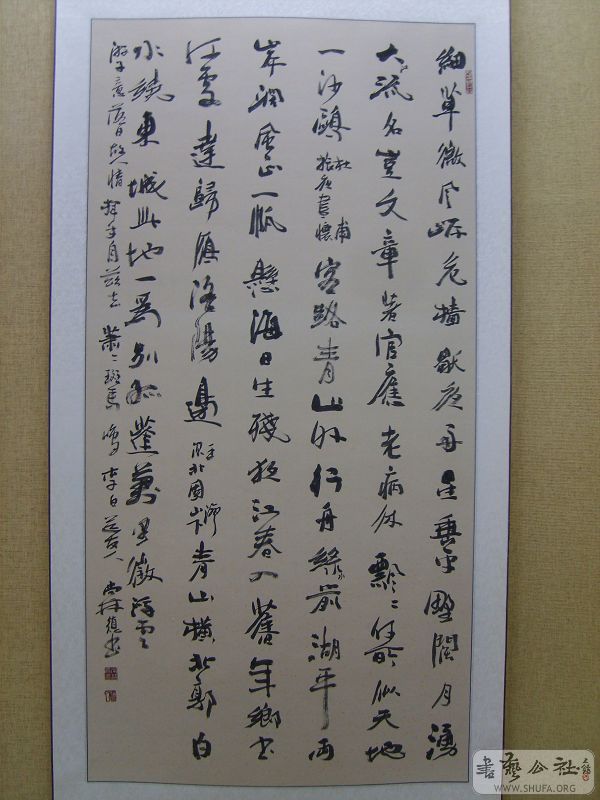 細草微風岸危檣獨夜舟星垂平野闊月湧
大流名豈文章著官應老病休飄〻何所似天地
一沙鷗 杜甫旅夜書懷 客路青山外行舟綠水前湖平兩
岸闊風正一帆懸海日生殘夜江春入舊年鄉書
何處達歸雁洛陽邊 王灣次北固山下 青山橫北郭白
水繞東城此地一為別孤蓬萬里徵浮雲
游子意落日故人情揮手自茲去蕭〻班馬鳴 李白送友人
書藝公社
WWW.SHUFA.ORG